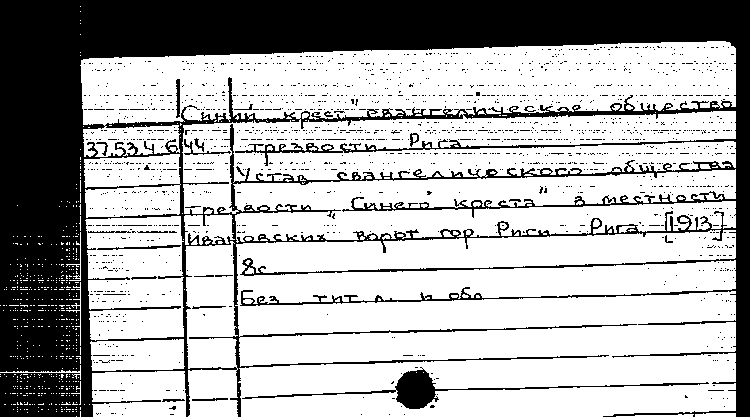 "Синий крест", евангелическое общество
37.53.4.644 трезвости. Рига.
Устав евангелического общества
трезвости „Синего креста" в местности
Ивановских ворот гор. Риги. Рига, [1913]
8с.
Без тит. л. и обл.